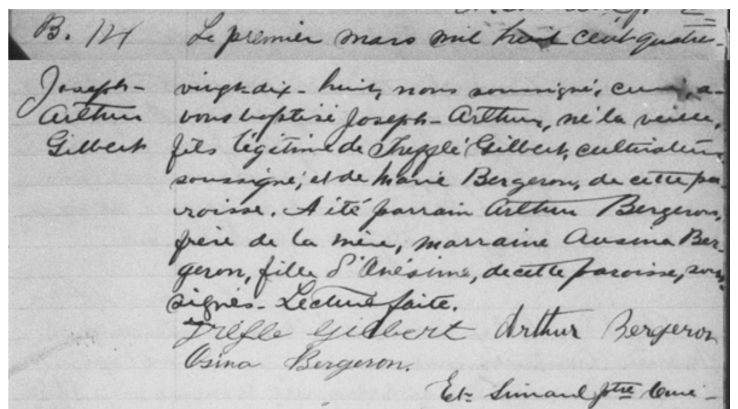 B. 14 Le premier mars mil huit cent quatre-
Joseph- vingt-dix-huit, nous soussigné, curé, a-
Arthur vons baptisé Joseph-Arthur, né la veille,
Gilbert fils légitime de Trefflé Gilbert, cultivateur
soussigné, et de Marie Bergeron, de cette pa-
roisse. A été parrain Arthur Bergeron,
frère de la mère, marraine Ausina Ber-
geron, fille d'Onésime, de cette paroisse, sous-
signés. Lecture faite.
Trefle Gilbert Arthur Bergeron
Osina Bergeron.
Et. Simard ptre Curé-